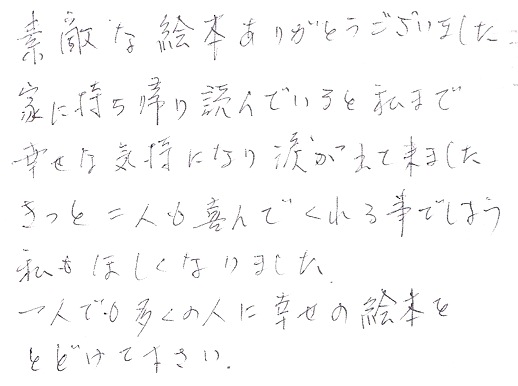 素敵な絵本ありがとうございました
家に持ち帰り読んでいると私まで
幸せな気持になり涙が出て来ました
きっと二人も喜んでくれる事でしょう
私もほしくなりました。
一人でも多くの人に幸せの絵本を
とどけて下さい。